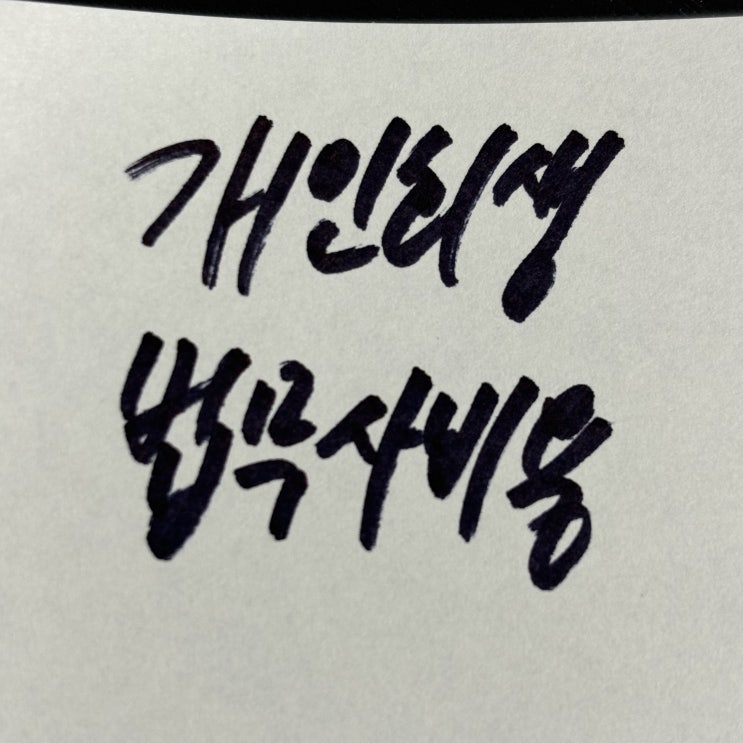 개인회생
법무사비용